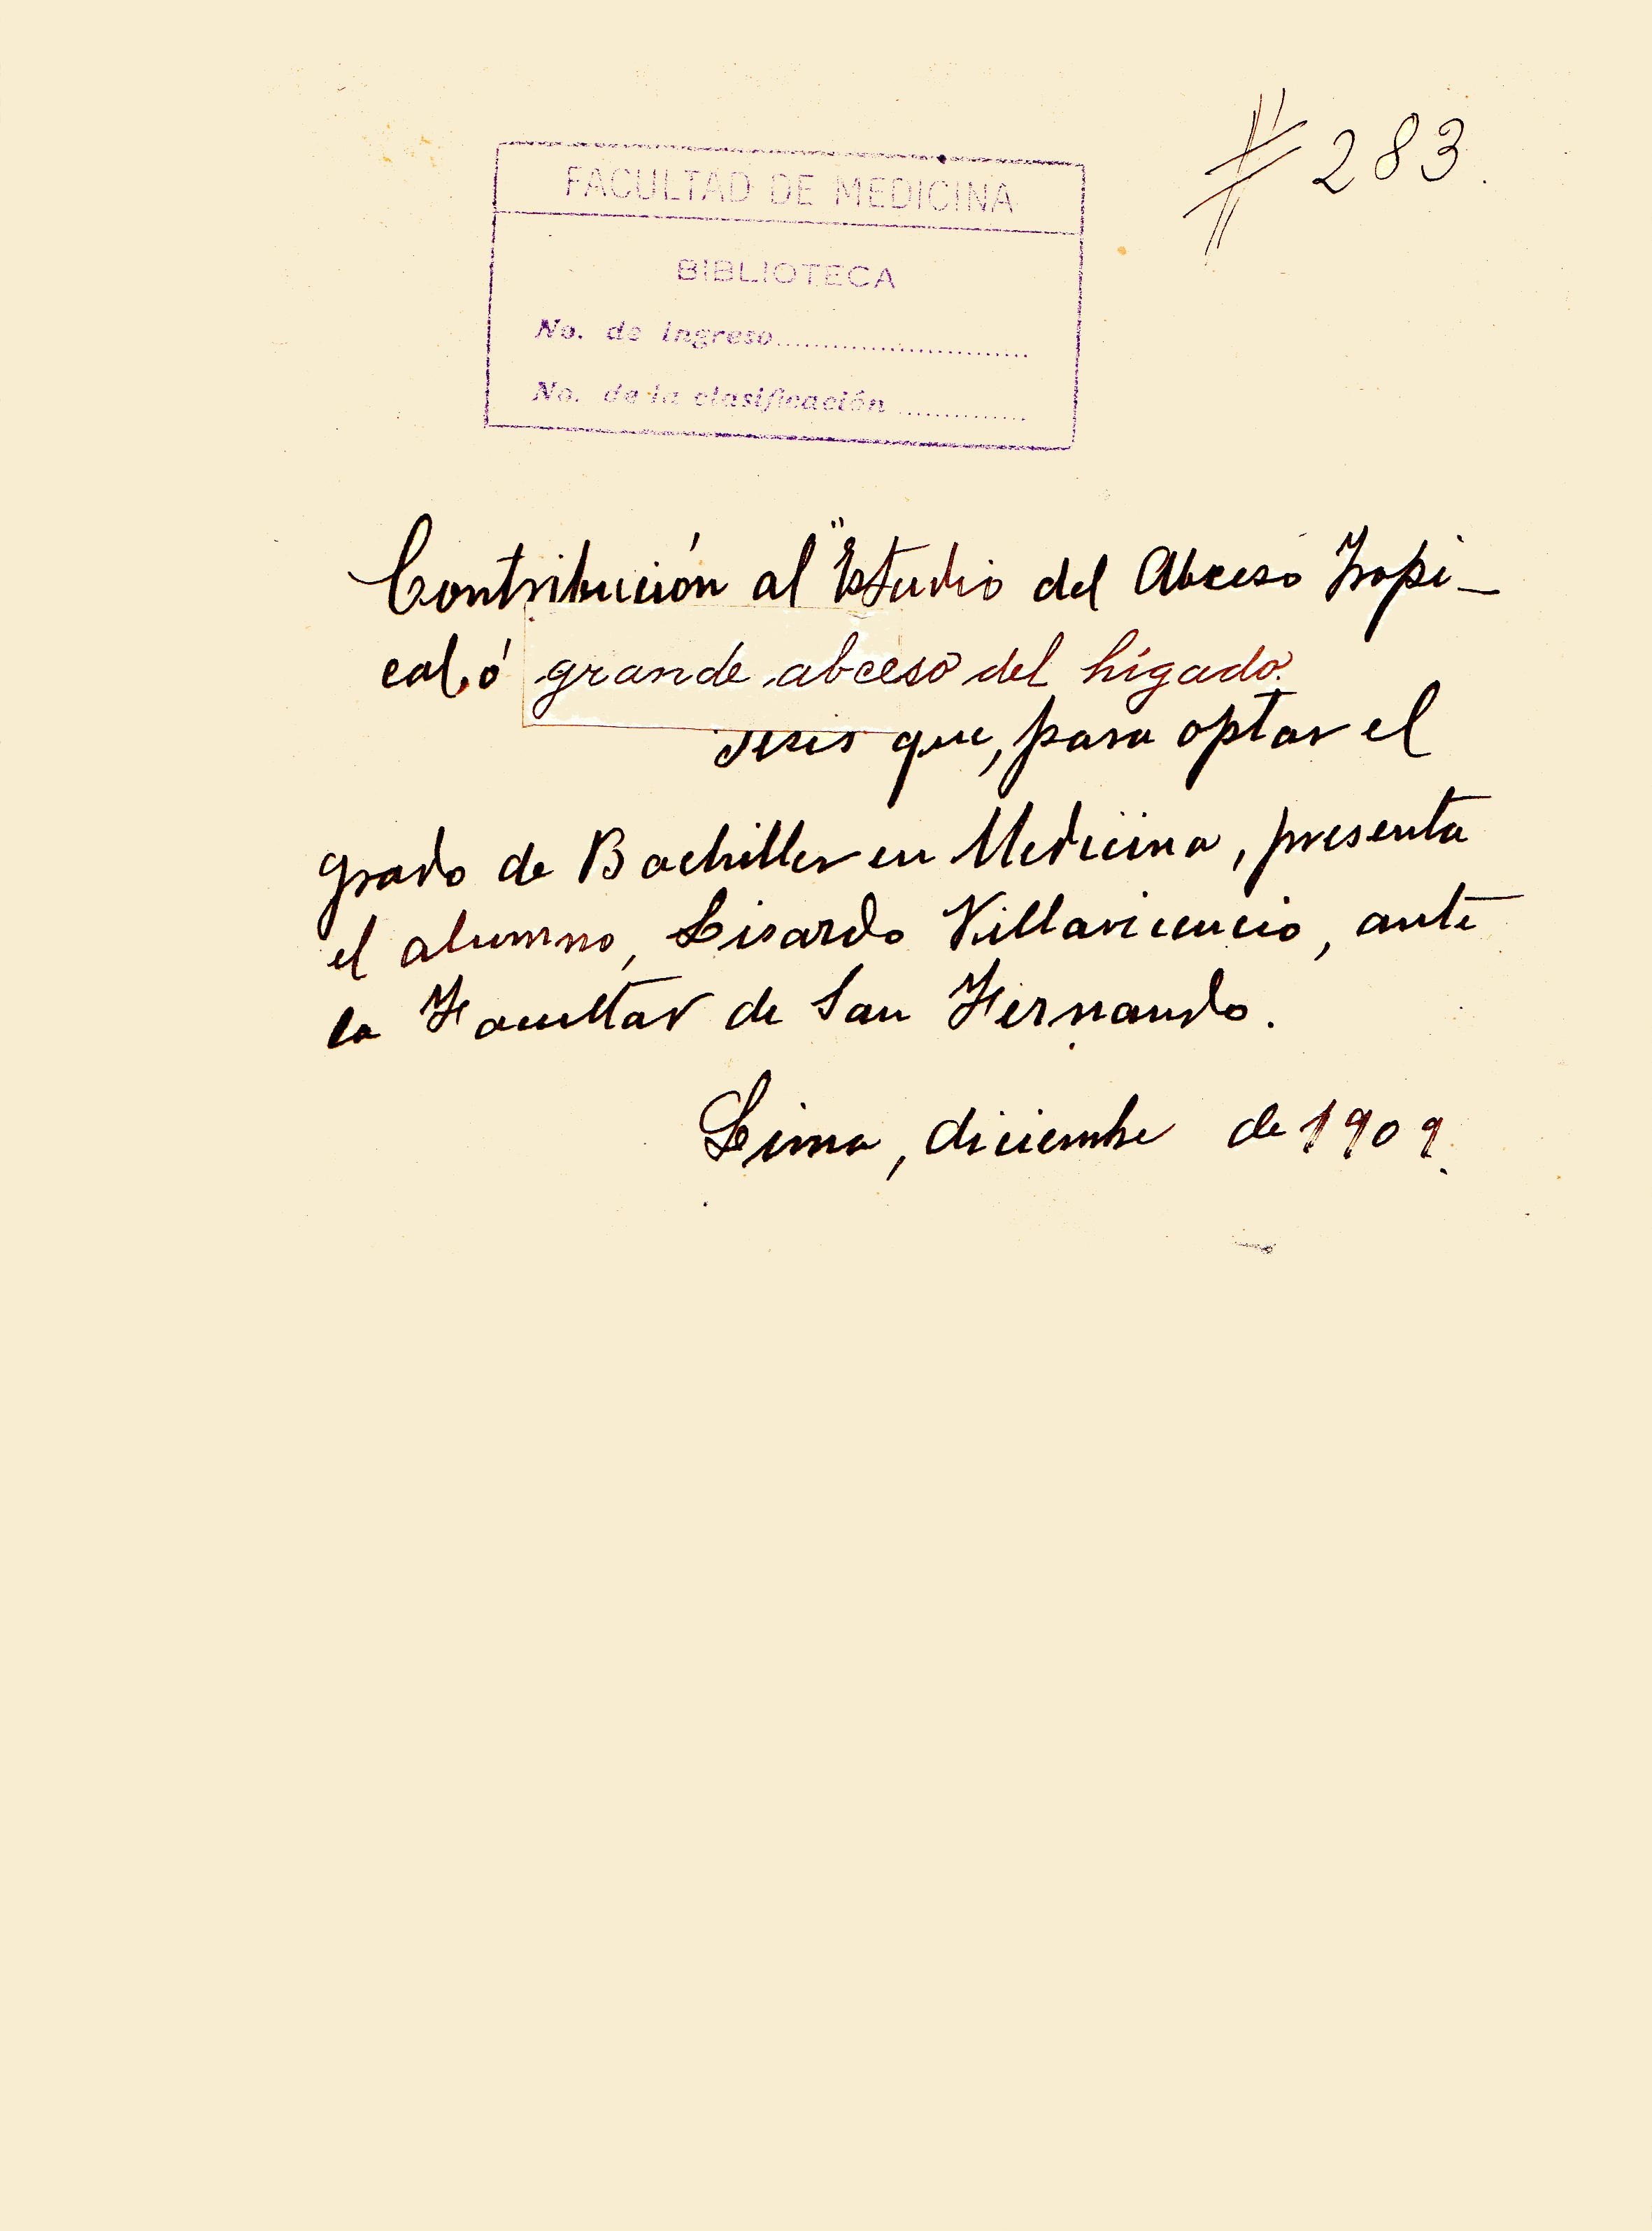 # 283.
FACULTAD DE MEDICINA
BIBLIOTECA
No. de ingreso..........................
No. de la clasificación .............
Contribución al "Estudio del Abceso Tropi-
cal, ó grande abceso del hígado.
Tesis que, para optar el
grado de Bachiller en Medicina, presenta
el alumno, Lisardo Villavicencio, ante
la Facultad de San Fernando.
Lima, diciembre de 1909.